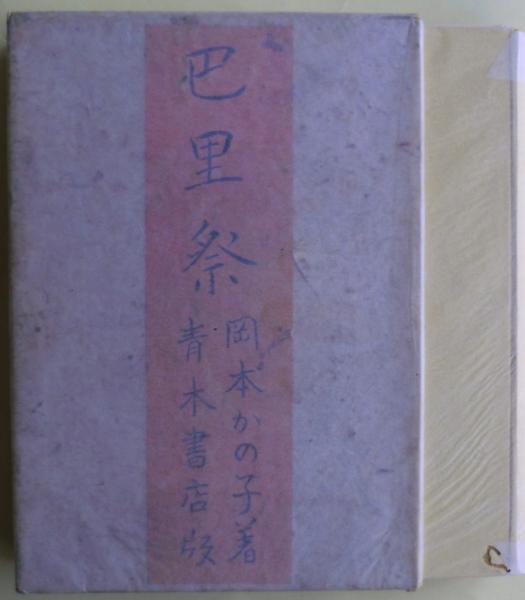 巴里祭
岡本かの子著
青木書店版